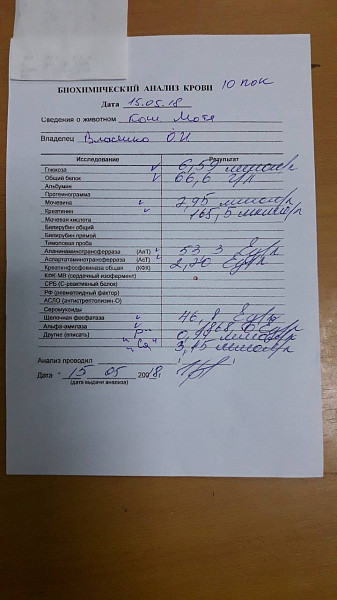 БИОХИМИЧЕСКИЙ АНАЛИЗ КРОВИ 10 пок
Дата 15.05.18
Сведения о животном Кот Мотя
Владелец Власенко О.И
Исследование Результат
Глюкоза 6,59 ммоль/л
Общий белок 66,6 г/л
Альбумин
Протеинограмма
Мочевина 7,95 ммоль/л
Креатинин 165,5 мкмоль/л
Мочевая кислота
Билирубин общий
Билирубин прямой
Тимоловая проба
Аланинаминотрансфераза (АлТ) 53,3 Ед/л
Аспартатаминотрансфераза (АсТ) Ед/л
Креатинфосфокиназа общая (КФК)
КФК-МВ (сердечный изофермент)
СРБ (С-реактивный белок)
РФ (ревматоидный фактор)
АСЛО (антистрептолизин-О)
Серомукоиды
Щелочная фосфатаза 46,8 Ед/л
Альфа-амилаза Ед/л
Другие (вписать) ммоль/л
"Ca" 3,15 ммоль/л
Анализ проводил
Дата " 15 05 2018г.
(дата выдачи анализа)